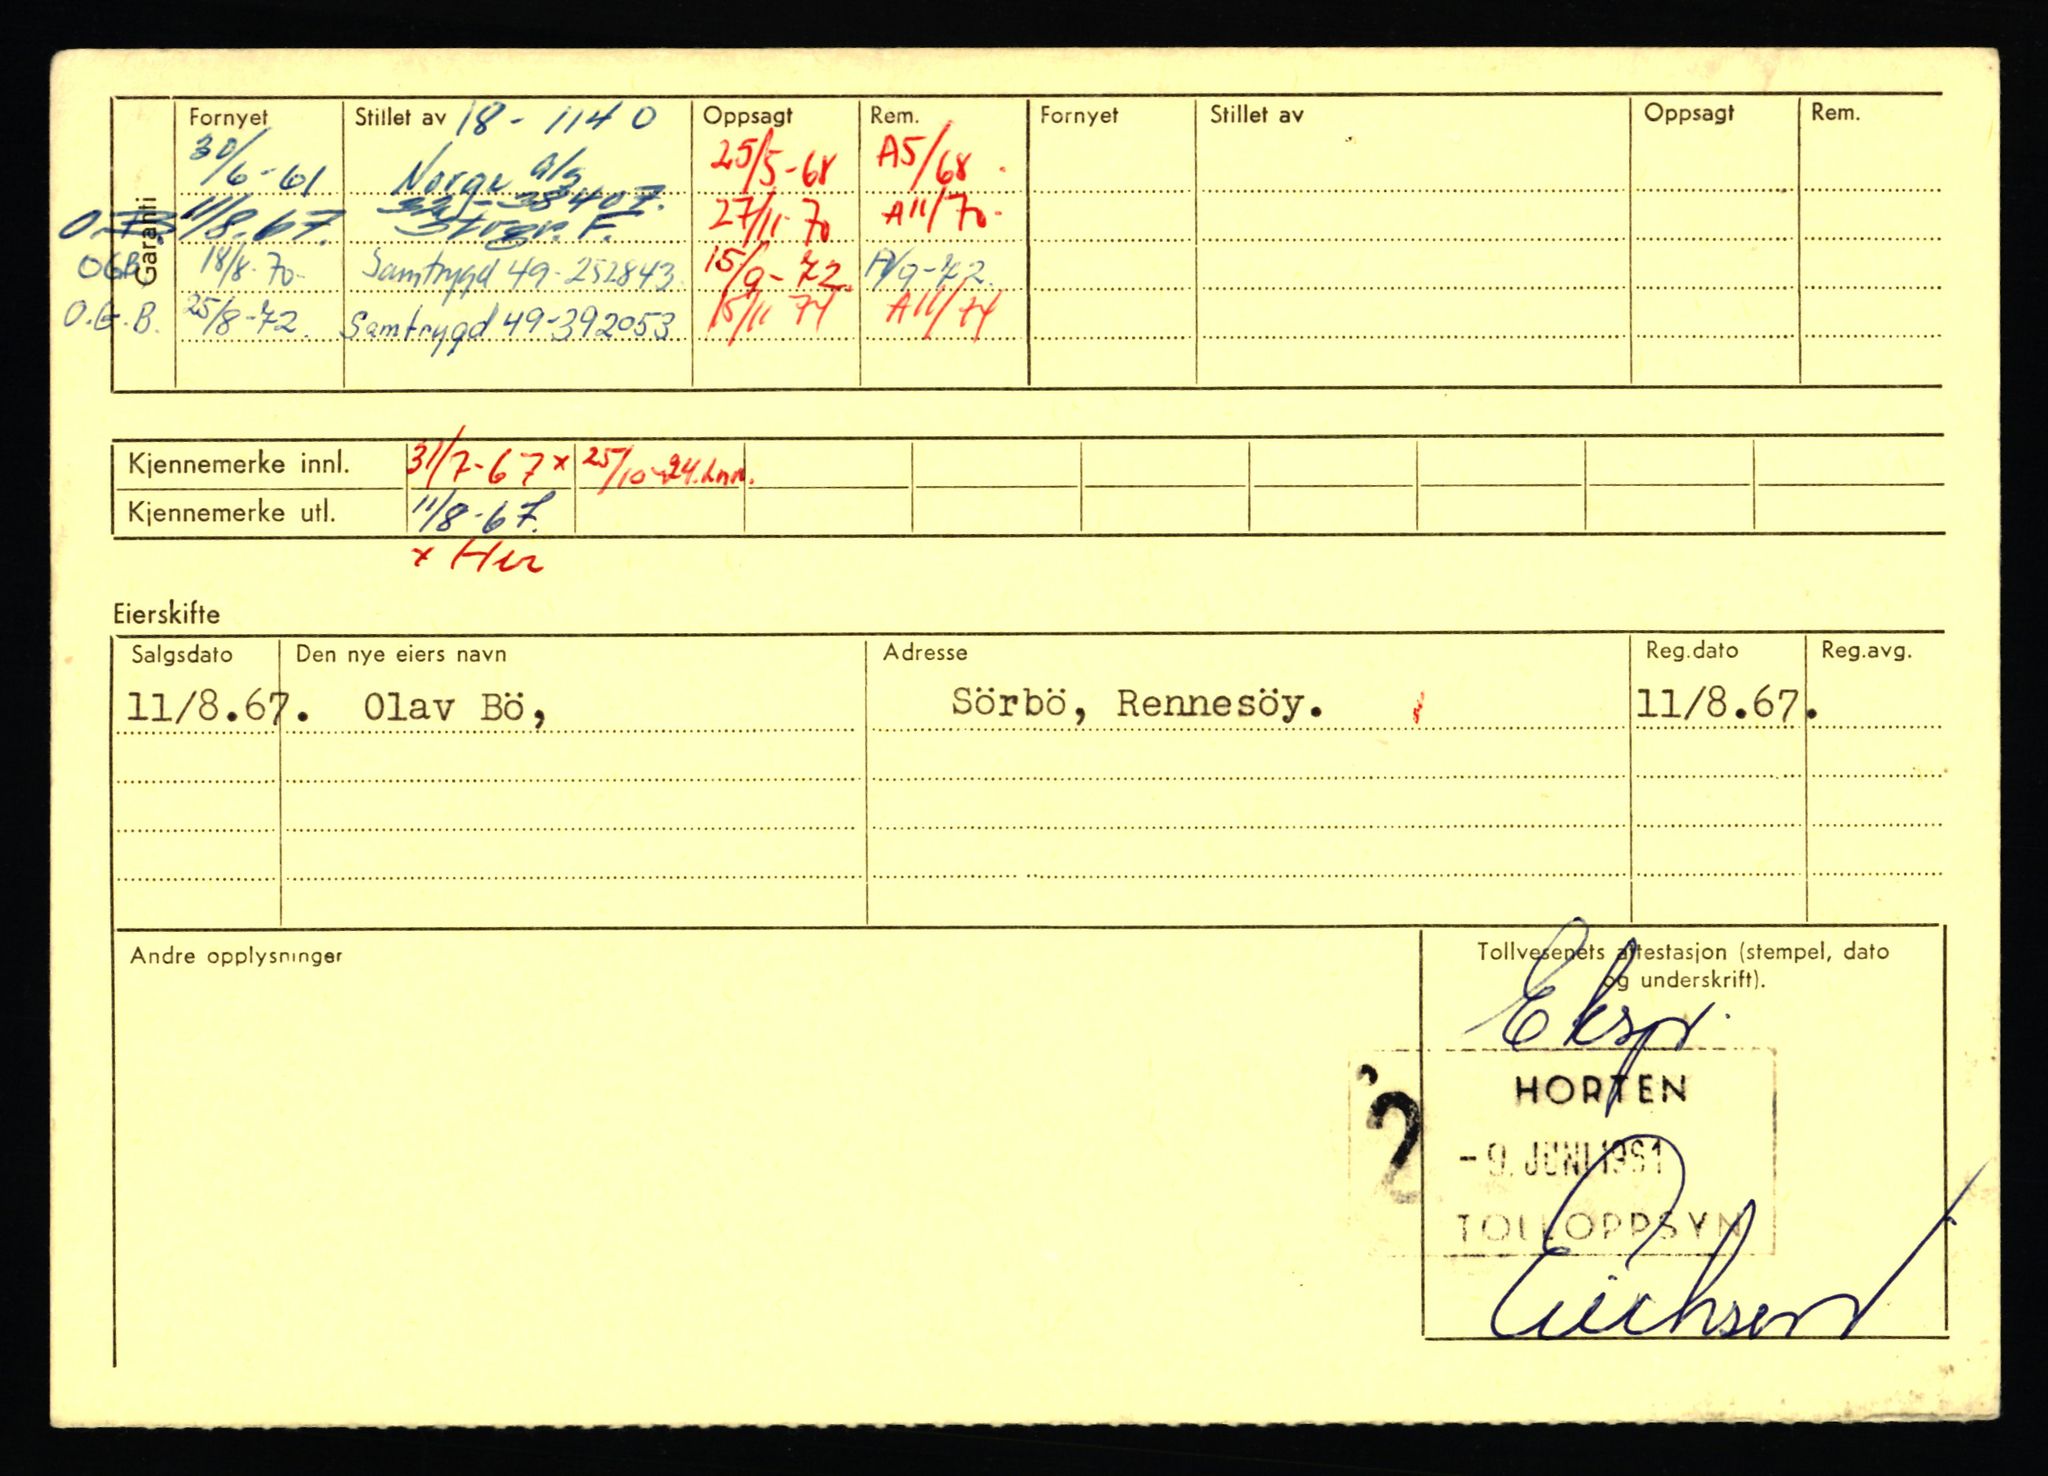 Garanti
Fornyet Stillet av 18-1140 Oppsagt Rem. Fornyet Stillet av Oppsagt Rem.
30/6-61 Norge a/s 25/5-68 A5/68.
11/8.67. 27/11-70 A11/70.
OGB. 18/8-70. Samtrygd 49-252843. 15/9-72. A/9-72.
O.G.B. 25/8-72. Samtrygd 49-392053 15/11 74 A11/74
Kjennemerke innl. 31/7-67 x 25/10-
Kjennemerke utl. 11/8-67.
x Her
Eierskifte
Salgsdato Den nye eiers navn Adresse Reg.dato Reg.avg.
11/8.67. Olav Bö, Sörbö, Rennesöy. 11/8.67.
Andre opplysninger
Tollvesenets attestasjon (stempel, dato
og underskrift).
Eksp.
HORTEN
2
-9. JUNI 1961
TOLLOPPSYN